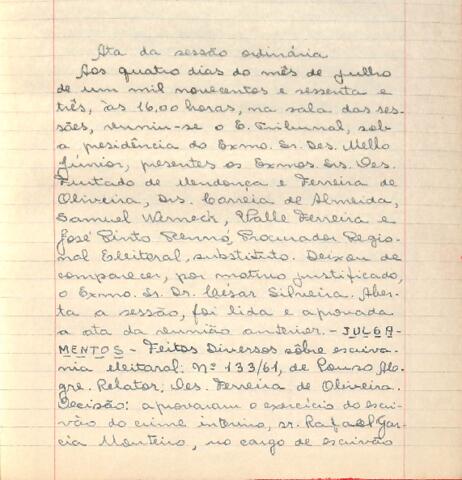 Ata da sessão ordinária
Aos quatro dias do mês de julho
de um mil novecentos e sessenta e
três, às 16,00 horas, na sala das ses-
sões, reuniu-se o E. Tribunal, sob
a presidência do Exmo. Sr. Des. Mello
Júnior, presentes os Exmos. Srs. Des.
Furtado de Mendonça e Ferreira de
Oliveira, Drs. Correia de Almeida,
Samuel Werneck, Valle Ferreira e
José Pinto Rennó, Procurador Regio-
nal Eleitoral, substituto. Deixou de
comparecer, por motivo justificado,
o Exmo. Sr. Dr. César Silveira. Aber-
ta a sessão, foi lida e aprovada
a ata da reunião anterior. - JULGA-
MENTOS - Feitos Diversos sôbre escriva-
nia eleitoral: Nº 133/61, de Pouso Ale-
gre. Relator, Des. Ferreira de Oliveira.
Decisão: aprovaram o exercício do escri-
vão do crime interino, sr. Rafael Gar-
cia Monteiro, no cargo de escrivão